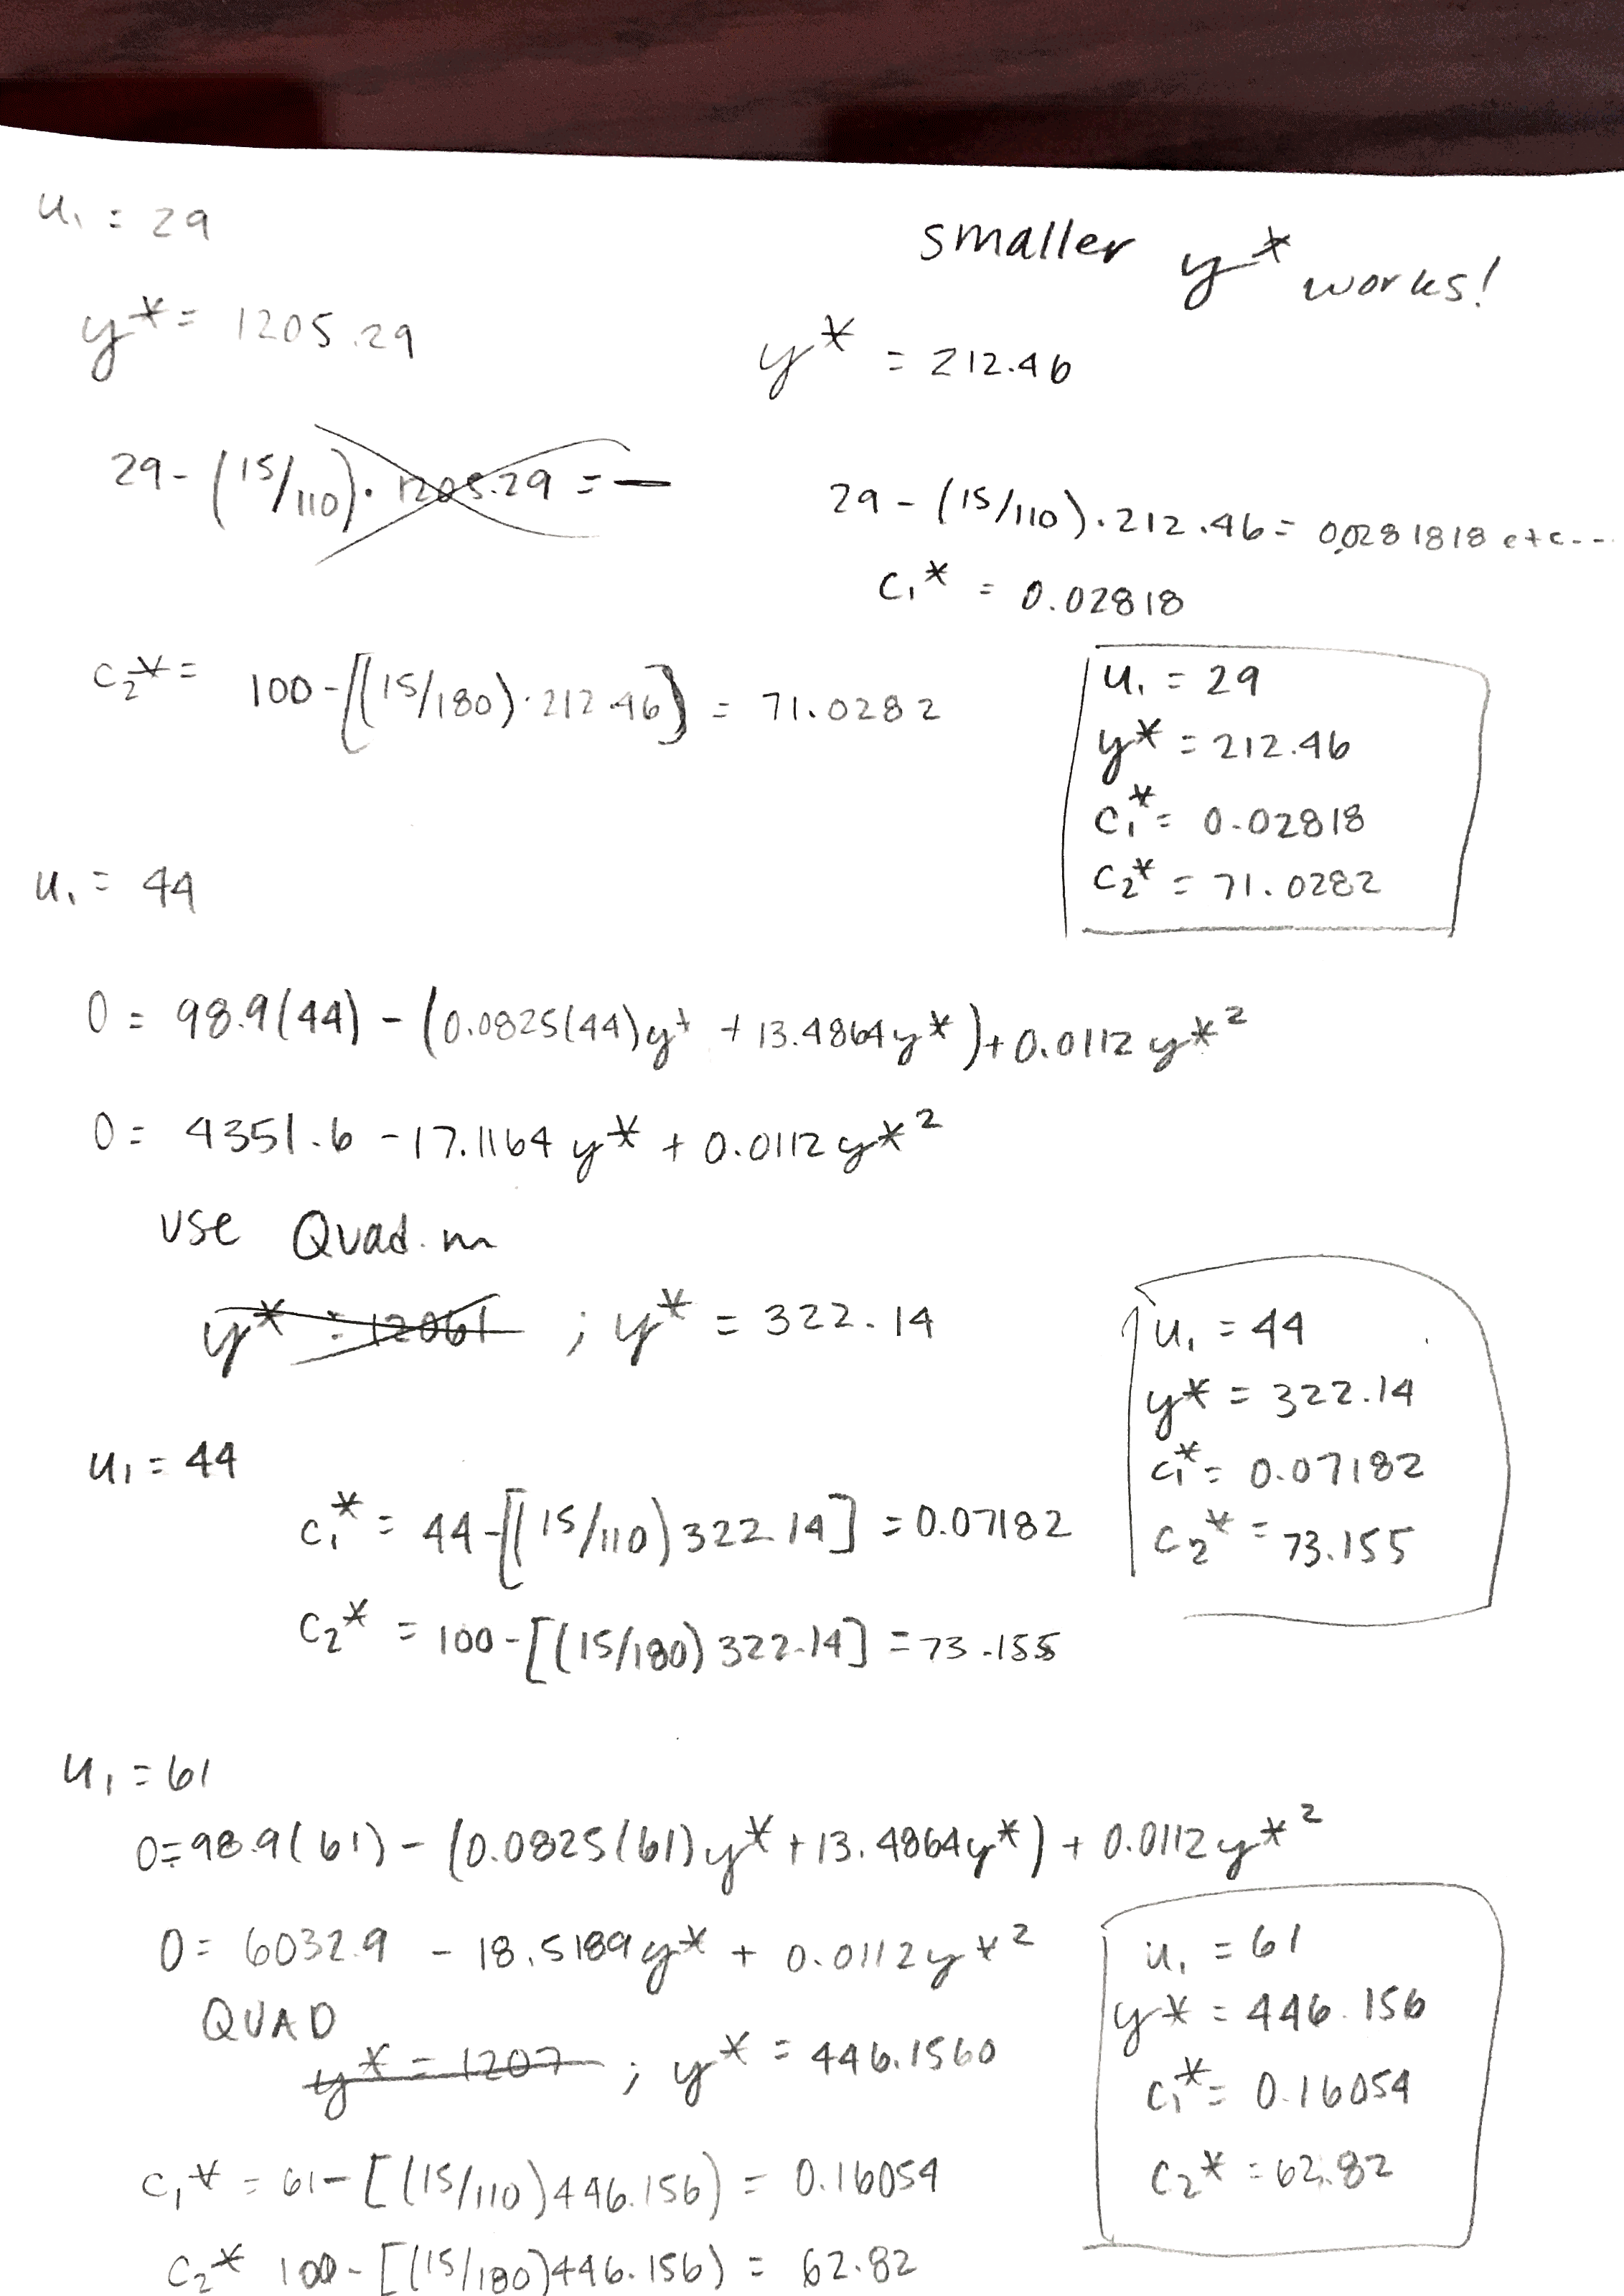 u₁ = 29
smaller y* works!
y* = 1205.29
y* = 212.46
29 - (15/110) · 1205.29 = —
29 - (15/110) · 212.46 = 0.0281818 etc...
c₁* = 0.02818
c₂* = 100 - [(15/180) · 212.46] = 71.0282
u₁ = 29
y* = 212.46
c₁* = 0.02818
c₂* = 71.0282
u₁ = 44
0 = 98.9(44) - (0.0825(44)y* + 13.4864y*) + 0.0112y*²
0 = 4351.6 - 17.1164y* + 0.0112y*²
use Quad.m
y* = 1206.1 ; y* = 322.14
u₁ = 44
y* = 322.14
c₁* = 0.07182
c₂* = 73.155
u₁ = 44
c₁* = 44 - [(15/110)322.14] = 0.07182
c₂* = 100 - [(15/180)322.14] = 73.155
u₁ = 61
0 = 98.9(61) - (0.0825(61)y* + 13.4864y*) + 0.0112y*²
0 = 6032.9 - 18.5189y* + 0.0112y*²
QUAD
y* = 1207 ; y* = 446.1560
u₁ = 61
y* = 446.156
c₁* = 0.16054
c₂* = 62.82
c₁* = 61 - [(15/110)446.156) = 0.16054
c₂* 100 - [(15/180)446.156) = 62.82